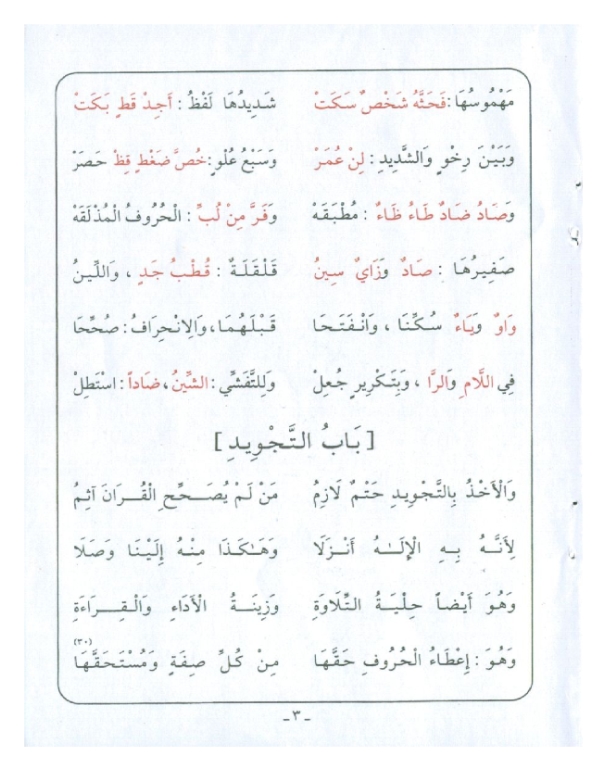 مَهْمُوسُهَا : فَحَثَّهُ شَخْصٌ سَكَتْ شَدِيدُهَا لَفْظُ : أَجِدْ قَطٍ بَكَتْ
وَبَيْنَ رِخْوٍ وَالشَّدِيدِ : لِنْ عُمَرْ وَسَبْعُ عُلْوٍ : خُصَّ ضَغْطٍ قِظْ حَصَرْ
وَصَادُ ضَادٌ طَاءُ ظَاءٌ : مُطْبَقَهْ وَفَرَّ مِنْ لُبِّ : الْحُرُوفُ الْمُذْلَقَهْ
صَفِيرُهَا : صَادٌ وَزَايٌ سِينُ قَلْقَلَةٌ : قُطْبُ جَدٍ ، وَاللِّينُ
وَاوٌ وَيَاءٌ سُكِّنَا ، وَانْفَتَحَا قَبْلَهُمَا ، وَالِانْحِرَافُ : صُحِّحَا
فِي اللَّامِ وَالرَّا ، وَبِتَكْرِيرٍ جُعِلْ وَلِلتَّفَشِّي : الشِّينُ ، ضَاداً : اسْتَطِلْ
[ بَابُ التَّجْوِيدِ ]
وَالْأَخْذُ بِالتَّجْوِيدِ حَتْمٌ لَازِمُ مَنْ لَمْ يُصَحِّحِ الْقُرَانَ آثِمُ
لِأَنَّهُ بِهِ الْإِلَـٰهُ أَنْزَلَا وَهَـٰكَذَا مِنْهُ إِلَيْنَا وَصَلَا
وَهُوَ أَيْضاً حِلْيَةُ التِّلَاوَةِ وَزِينَةُ الْأَدَاءِ وَالْقِرَاءَةِ
وَهُوَ : إِعْطَاءُ الْحُرُوفِ حَقَّهَا مِنْ كُلِّ صِفَةٍ وَمُسْتَحَقَّهَا (٣٠)
-٣-